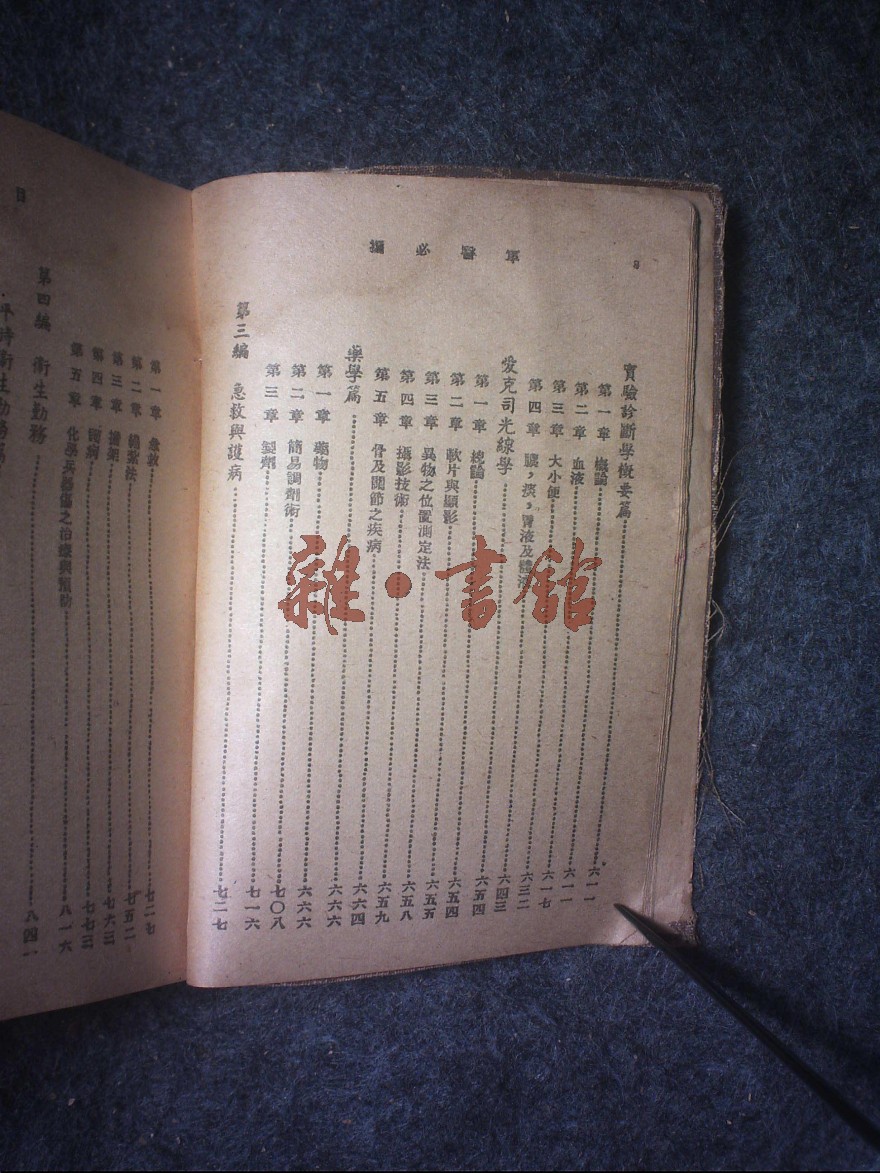 軍醫必攜
8
實驗診斷學概要篇……六一一
第一章 概論……六一一
第二章 血液……六一七
第三章 大小便……六三二
第四章 膿，痰，胃液及體液……六四三
愛克司光線學……六五四
第一章 總論……六五四
第二章 軟片與顯影……六五五
第三章 異物之位置測定法……六五八
第四章 攝影技術……六五九
第五章 骨及關節之疾病……六六四
藥學篇……六六六
第一章 藥物……六六六
第二章 簡易調劑術……七〇八
第三章 製劑……七一六
第三編 急救與護病……七二七
目
第一章 急救……七二七
第二章 繃紮法……七五二
第三章 擔架……七六三
第四章 護病……七七三
第五章 化學兵器傷之治療與預防……八一六
第四編 衛生勤務……八四一
平時衛生勤務篇
雜·書館